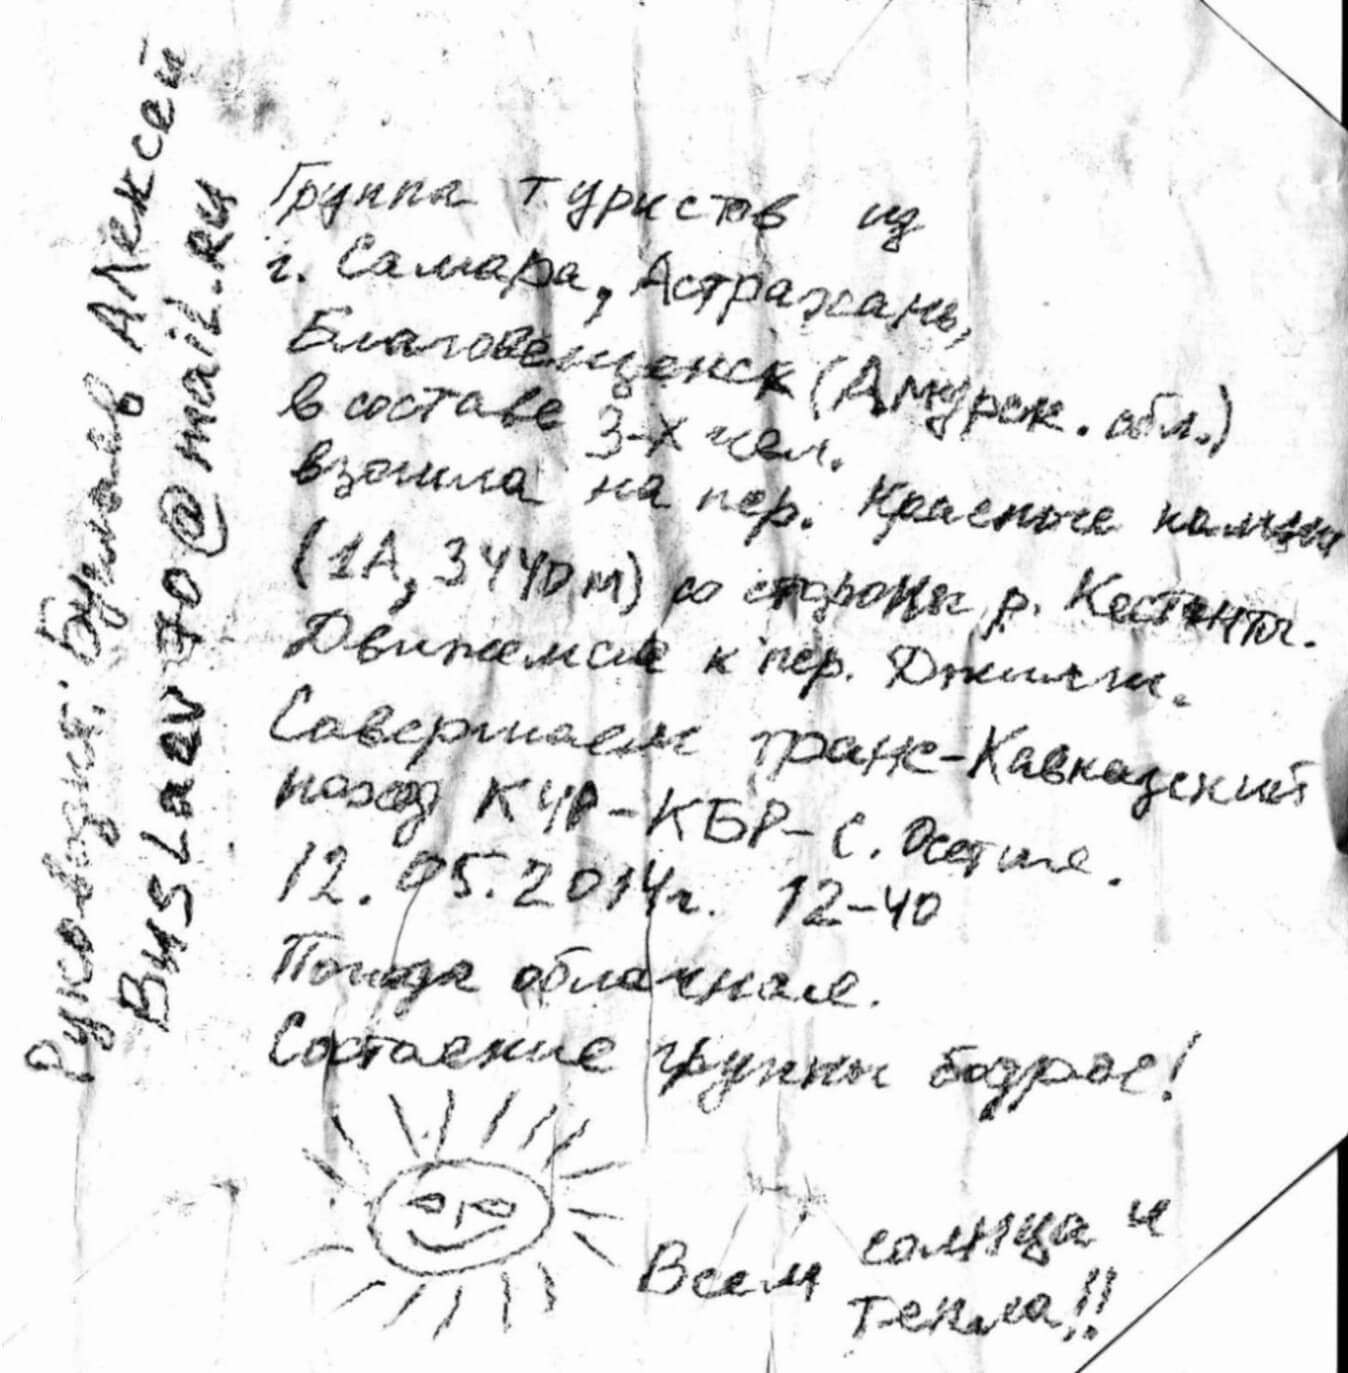 Группа туристов из
г. Самара, Астрахань,
Благовещенск (Амурск. обл.)
в составе 3-х чел.
взошла на пер. Красные камни
(1А, 3440м) со стороны р. Кестанты.
Движемся к пер. Джилли.
Совершаем транс-Кавказский
поход КЧР-КБР-С. Осетия.
12.05.2014г. 12-40
Погода облачная.
Состояние группы бодрое!
Всем солнца и
тепла!!
Руководит. Буслаев Алексей
BusLaev70@mail.ru